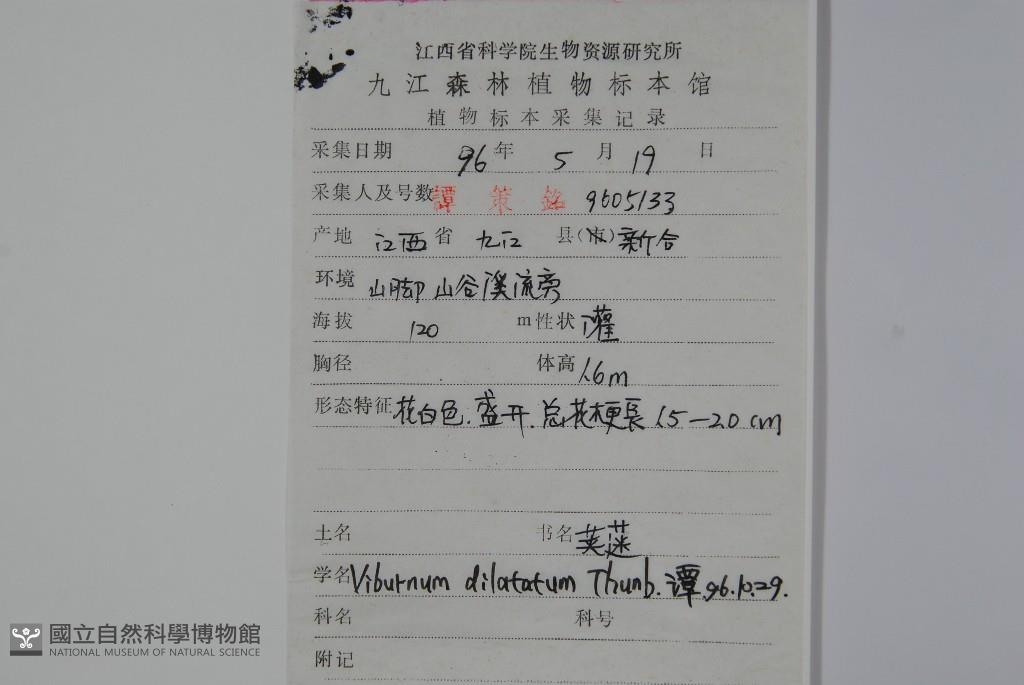 江西省科学院生物资源研究所
九江森林植物标本馆
植物标本采集记录
采集日期 96 年 5 月 19 日
采集人及号数 譚策銘 9605133
产地 江西 省 九江 县(市) 新合
环境 山脚山谷溪流旁
海拔 120 m 性状 灌
胸径 体高 1.6m
形态特征 花白色.盛开.总花梗長 1.5—2.0 cm
土名 书名 荚蒾
学名 Viburnum dilatatum Thunb. 谭.96.10.29.
科名 科号
附记
國立自然科學博物館
NATIONAL MUSEUM OF NATURAL SCIENCE